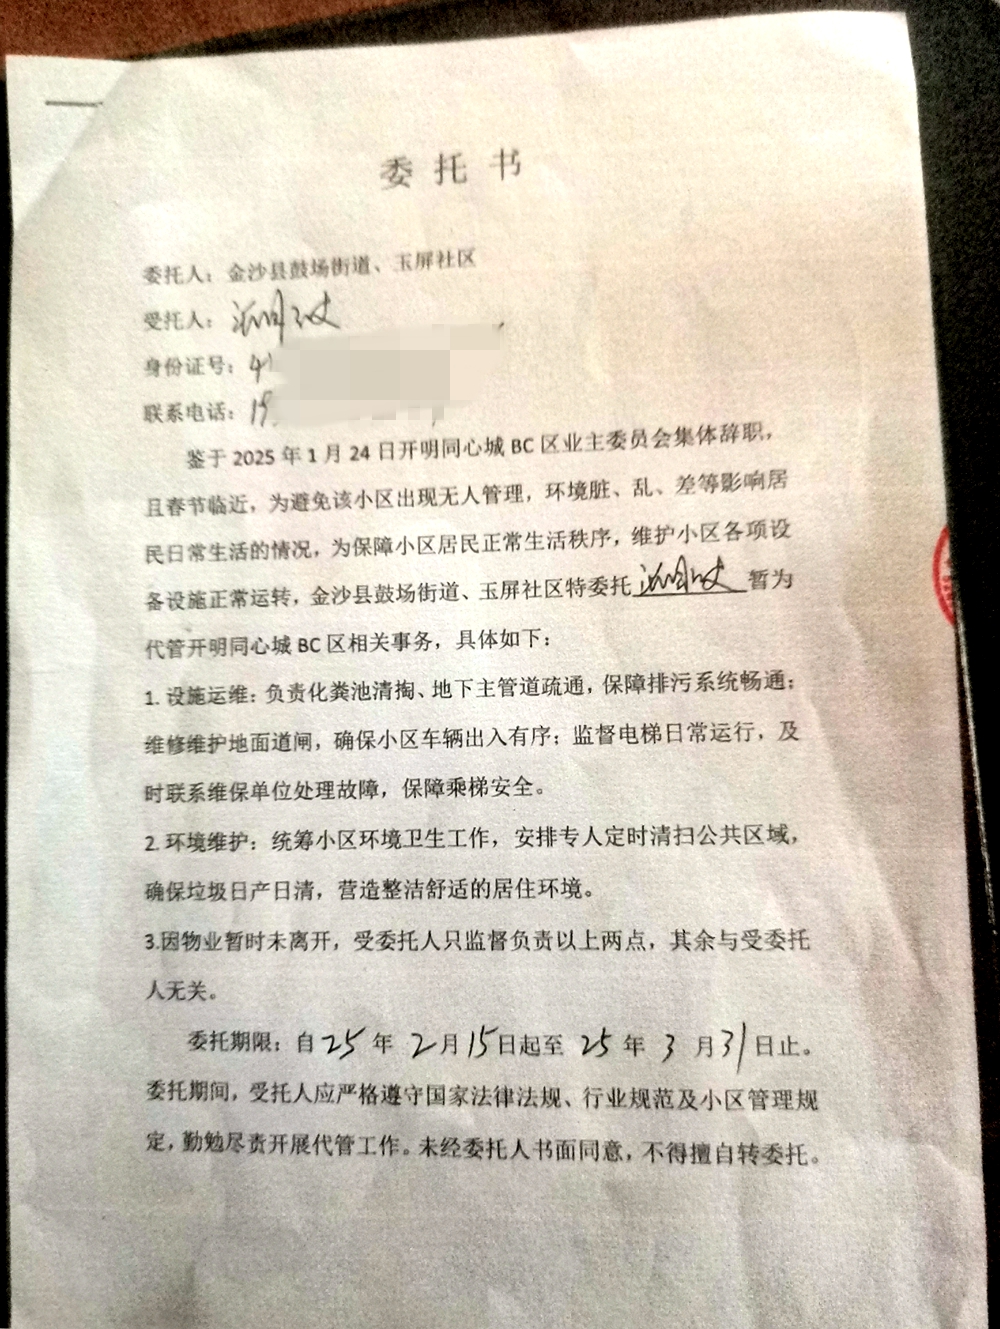 委托书
委托人：金沙县鼓场街道、玉屏社区
受托人：
身份证号：4
联系电话：19
鉴于 2025 年 1 月 24 日开明同心城 BC 区业主委员会集体辞职，
且春节临近，为避免该小区出现无人管理，环境脏、乱、差等影响居
民日常生活的情况，为保障小区居民正常生活秩序，维护小区各项设
备设施正常运转，金沙县鼓场街道、玉屏社区特委托 暂为
代管开明同心城 BC 区相关事务，具体如下：
1. 设施运维：负责化粪池清掏、地下主管道疏通，保障排污系统畅通；
维修维护地面道闸，确保小区车辆出入有序；监督电梯日常运行，及
时联系维保单位处理故障，保障乘梯安全。
2. 环境维护：统筹小区环境卫生工作，安排专人定时清扫公共区域，
确保垃圾日产日清，营造整洁舒适的居住环境。
3.因物业暂时未离开，受委托人只监督负责以上两点，其余与受委托
人无关。
委托期限：自 25 年 2 月 15 日起至 25 年 3 月 31 日止。
委托期间，受托人应严格遵守国家法律法规、行业规范及小区管理规
定，勤勉尽责开展代管工作。未经委托人书面同意，不得擅自转委托。